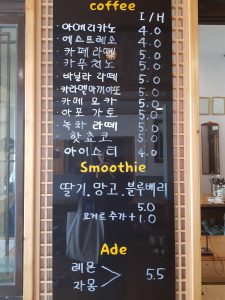 coffee
I/H
·아메리카노 4.0
·에스프레소 4.0
·카페라떼 5.0
·카푸치노 5.0
·바닐라 라떼 5.0
·카라멜마끼아또 5.0
·카페 모카 5.0
·아포가토 5.0
·녹차 라떼 5.0
·핫쵸코 5.0
·아이스티 4.0
Smoothie
딸기.망고.블루베리
5.0
요거트 추가 +1.0
Ade
레몬
자몽 > 5.5